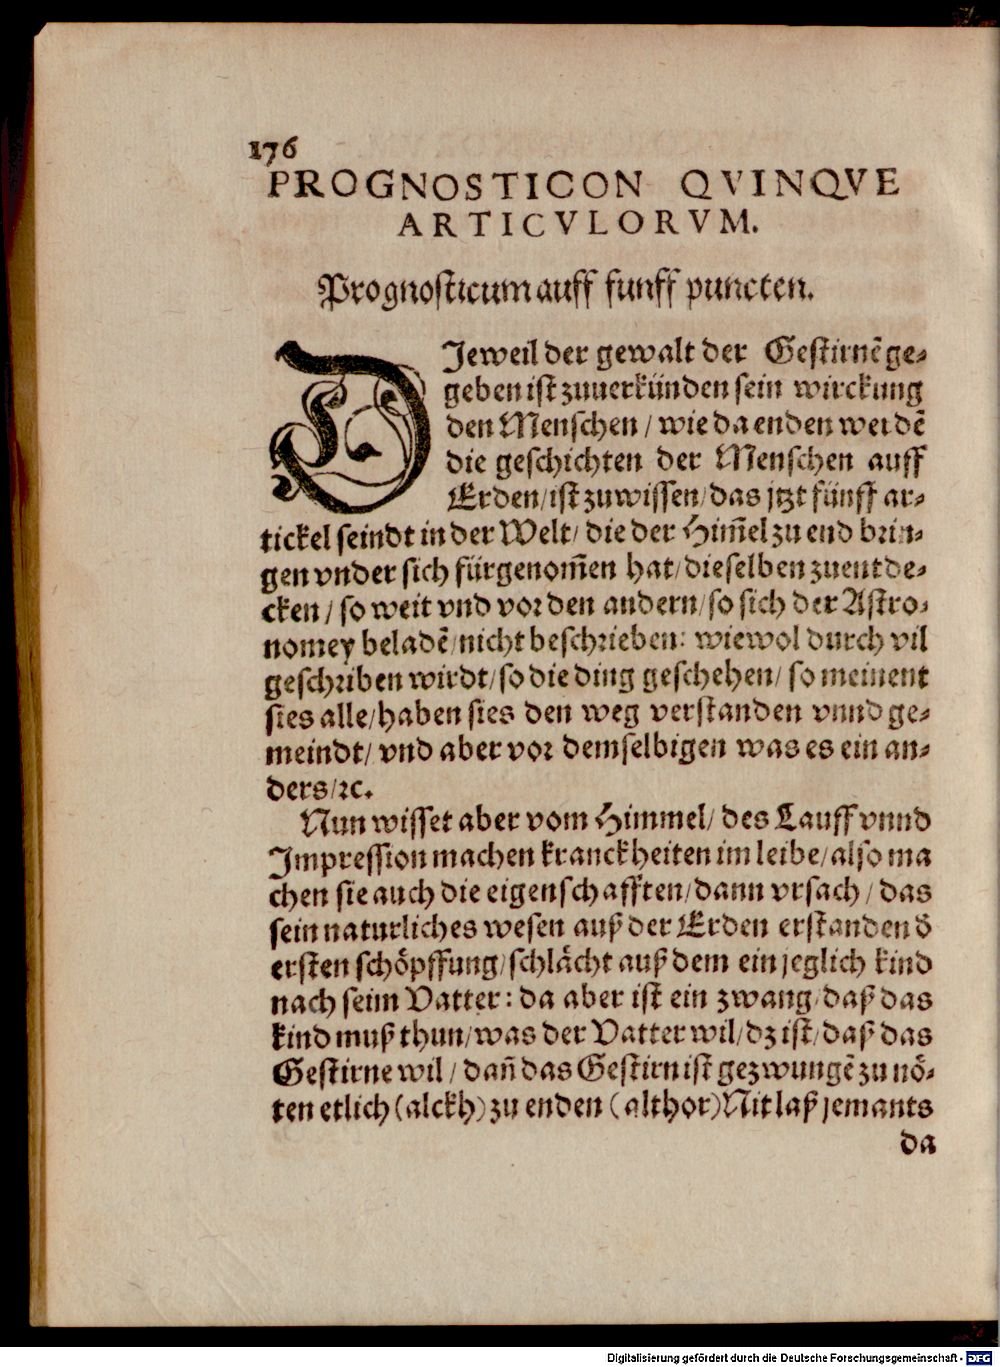 176
PROGNOSTICON QVINQVE
ARTICVLORVM.
Prognosticum auff funff puncten.
DJeweil der gewalt der Gestirnẽ ge⸗
geben ist zuuerkünden sein wirckung
den Menschen / wie da enden werdẽ
die geschichten der Menschen auff
Erden/ ist zuwissen/ das jtzt fünff ar⸗
tickel seindt in der Welt/ die der Him̃el zu end brin⸗
gen vnder sich fürgenom̃en hat/ dieselben zuentde⸗
cken / so weit vnd vor den andern/ so sich der Astro⸗
nomey beladẽ/ nicht beschrieben: wiewol durch vil
geschriben wirdt/ so die ding geschehen/ so meinent
sies alle/ haben sies den weg verstanden vnnd ge⸗
meindt/ vnd aber vor demselbigen was es ein an⸗
ders/ ꝛc.
Nun wisset aber vom Himmel/ des Lauff vnnd
Impression machen kranckheiten im leibe/ also ma
chen sie auch die eigenschafften/ dann vrsach / das
sein naturliches wesen auß der Erden erstanden d̃
ersten schöpffung/ schlächt auß dem ein jeglich kind
nach seim Vatter: da aber ist ein zwang/ daß das
kind muß thun/ was der Vatter wil/ dz ist/ daß das
Gestirne wil / dañ das Gestirn ist gezwungẽ zu nö⸗
ten etlich (alckh) zu enden (althor) Nit laß jemants
da
Digitalisierung gefördert durch die Deutsche Forschungsgemeinschaft - DFG